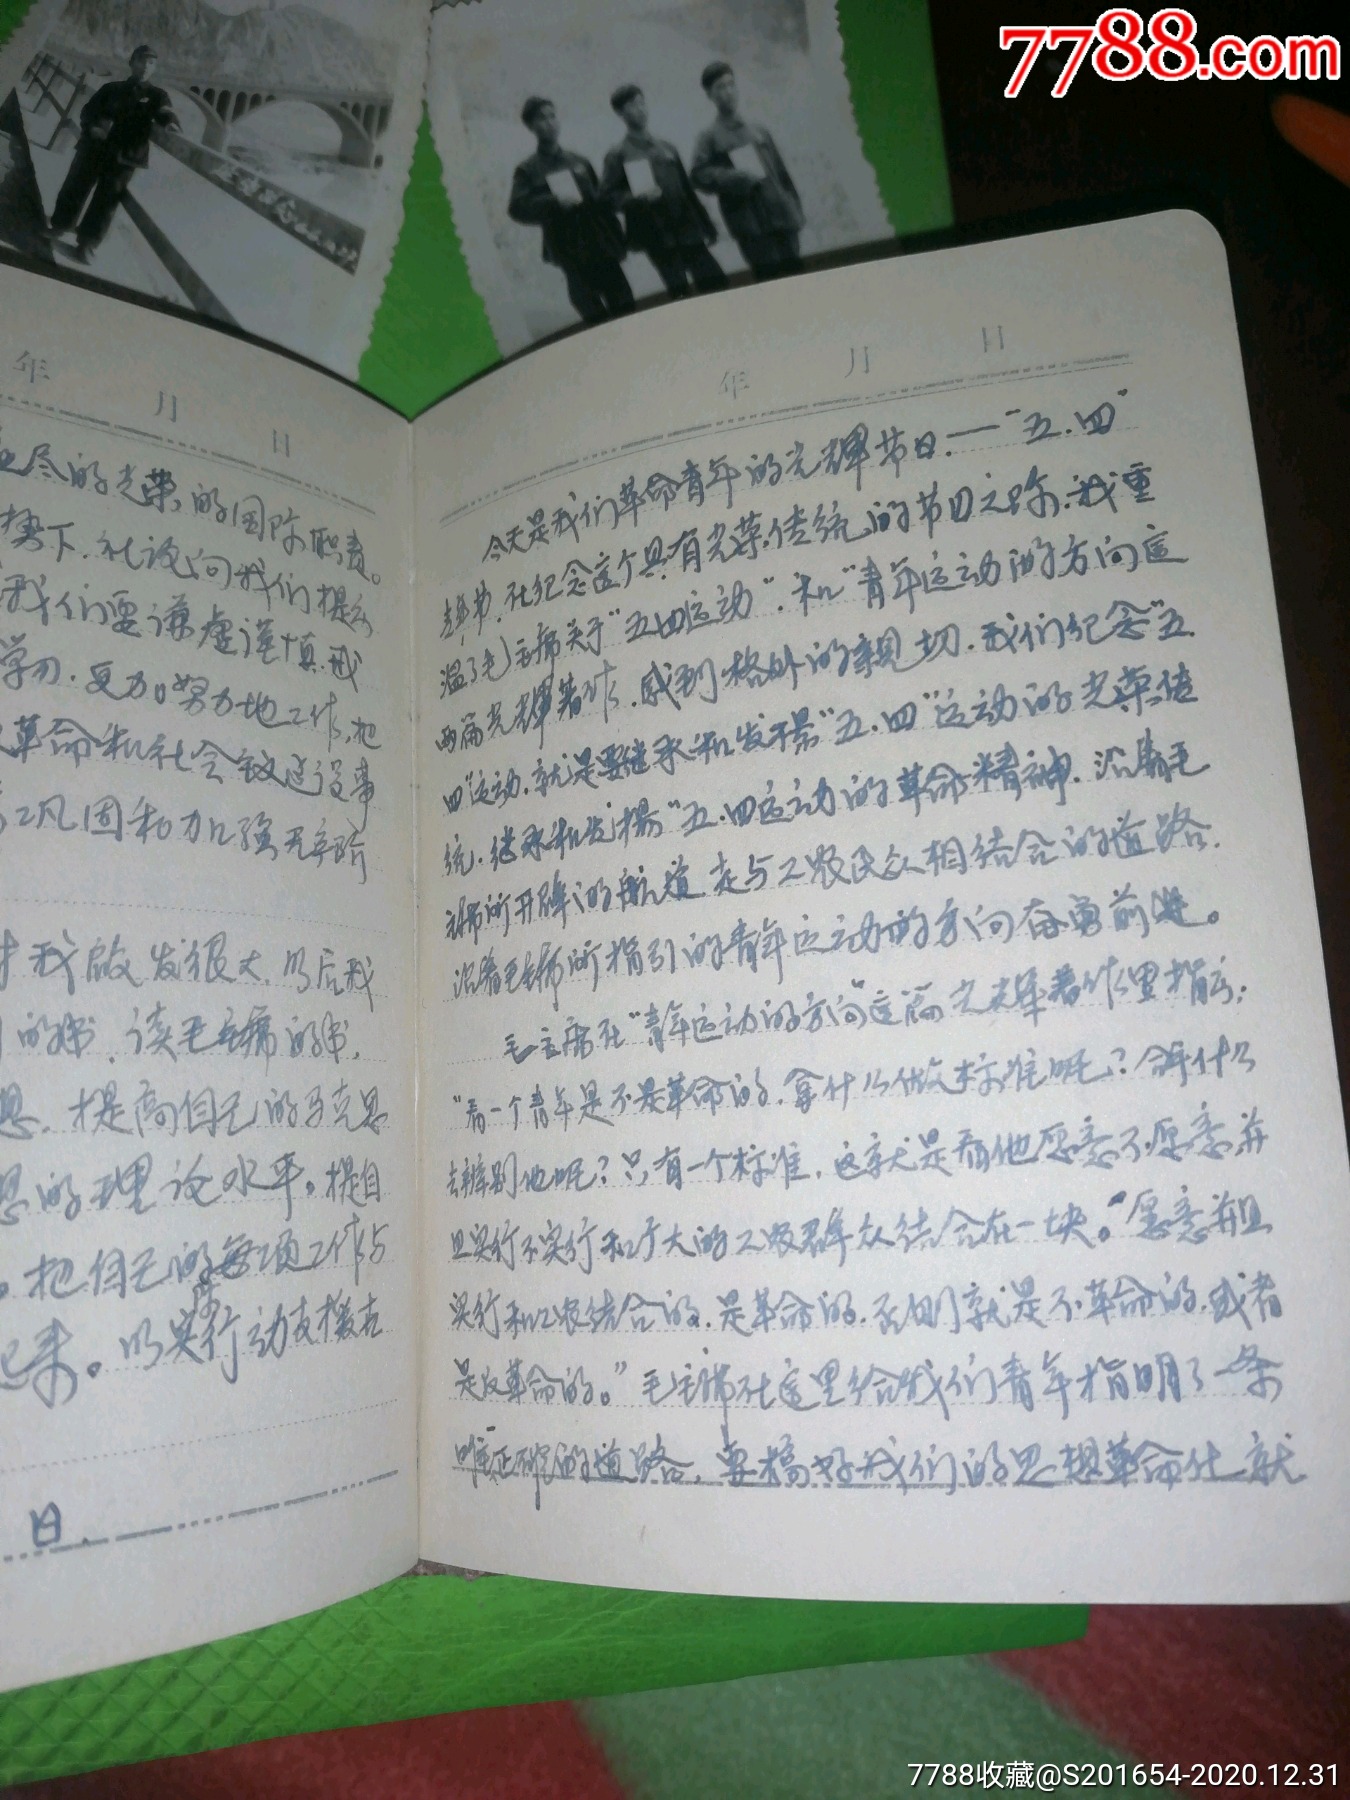 7788.com
年 月 日
尽的光荣的国际职责。
势下.社设向我们提出
我们要谦虚谨慎.戒
学习.努力地工作.把
革命和社会主义建设事
巩固和加强无产阶
对我启发很大.以后我
的书.读毛主席的书.
思.提高自己的马克思
思的理论水平。提自
。把自己的每项工作与
起来。以实际行动支援古
日.
年 月 日
今天是我们革命青年的光辉节日.—"五.四"
青年节.在纪念这个具有光荣传统的节日之际.我重
温了毛主席关于"五四运动".和"青年运动的方向这
两篇光辉著作.感到格外的亲切.我们纪念"五.
四"运动.就是要继承和发扬"五.四"运动的光荣传
统.继承和发扬"五.四运动的革命精神.沿着毛
主席所开辟的航道走与工农民众相结合的道路.
沿着毛主席所指引的青年运动的方向奋勇前进。
毛主席在"青年运动的方向"这篇光辉著作里指出:
"看一个青年是不是革命的.拿什么做标准呢?拿什么
去辨别他呢?只有一个标准.这就是看他愿意不愿意并
且实行不实行和广大的工农群众结合在一块。"愿意并且
实行和工农结合的.是革命的.否则就是不革命的.或者
是反革命的。"毛主席在这里给我们青年指明了一条
唯一正确的道路.要搞好我们的思想革命化就
7788收藏@S201654-2020.12.31